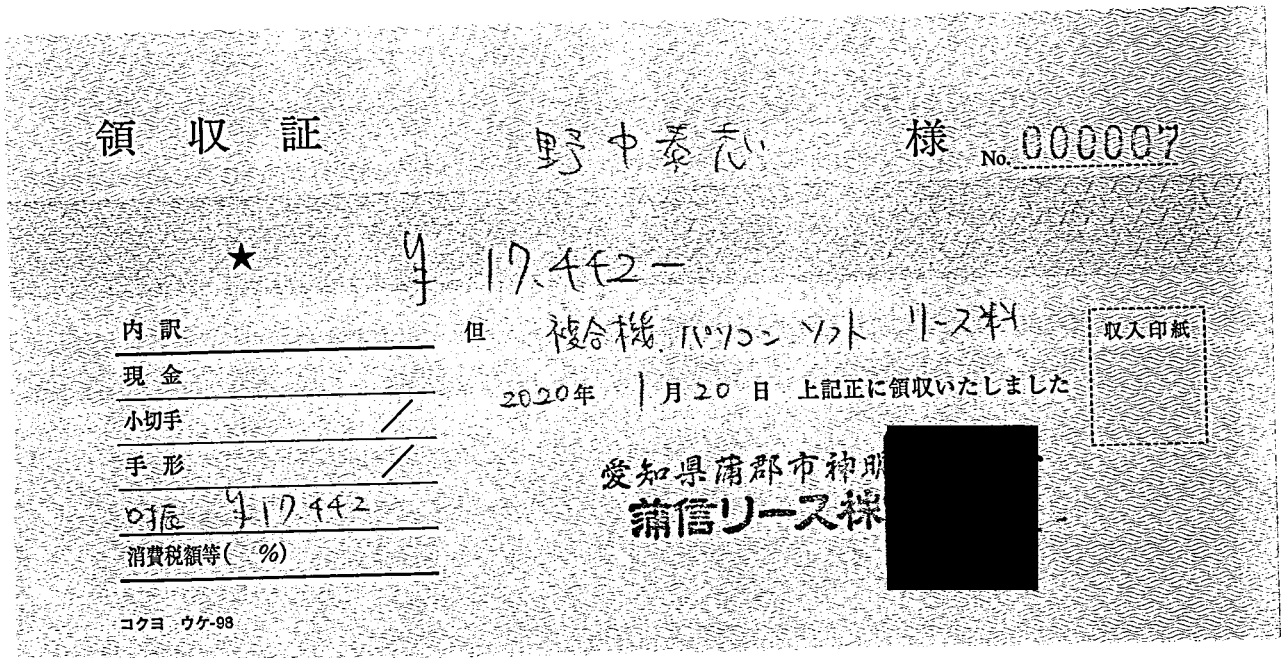 領収証 野中泰志 様 No. 000007
★ ¥ 17.442−
内訳
現金
小切手 /
手形 /
口振 ¥17.442
消費税額等( %)
コクヨ ウケ-98
但 複合機 パソコン ソフト リース料
2020年 1月20日 上記正に領収いたしました
収入印紙
愛知県蒲郡市神明
蒲信リース株